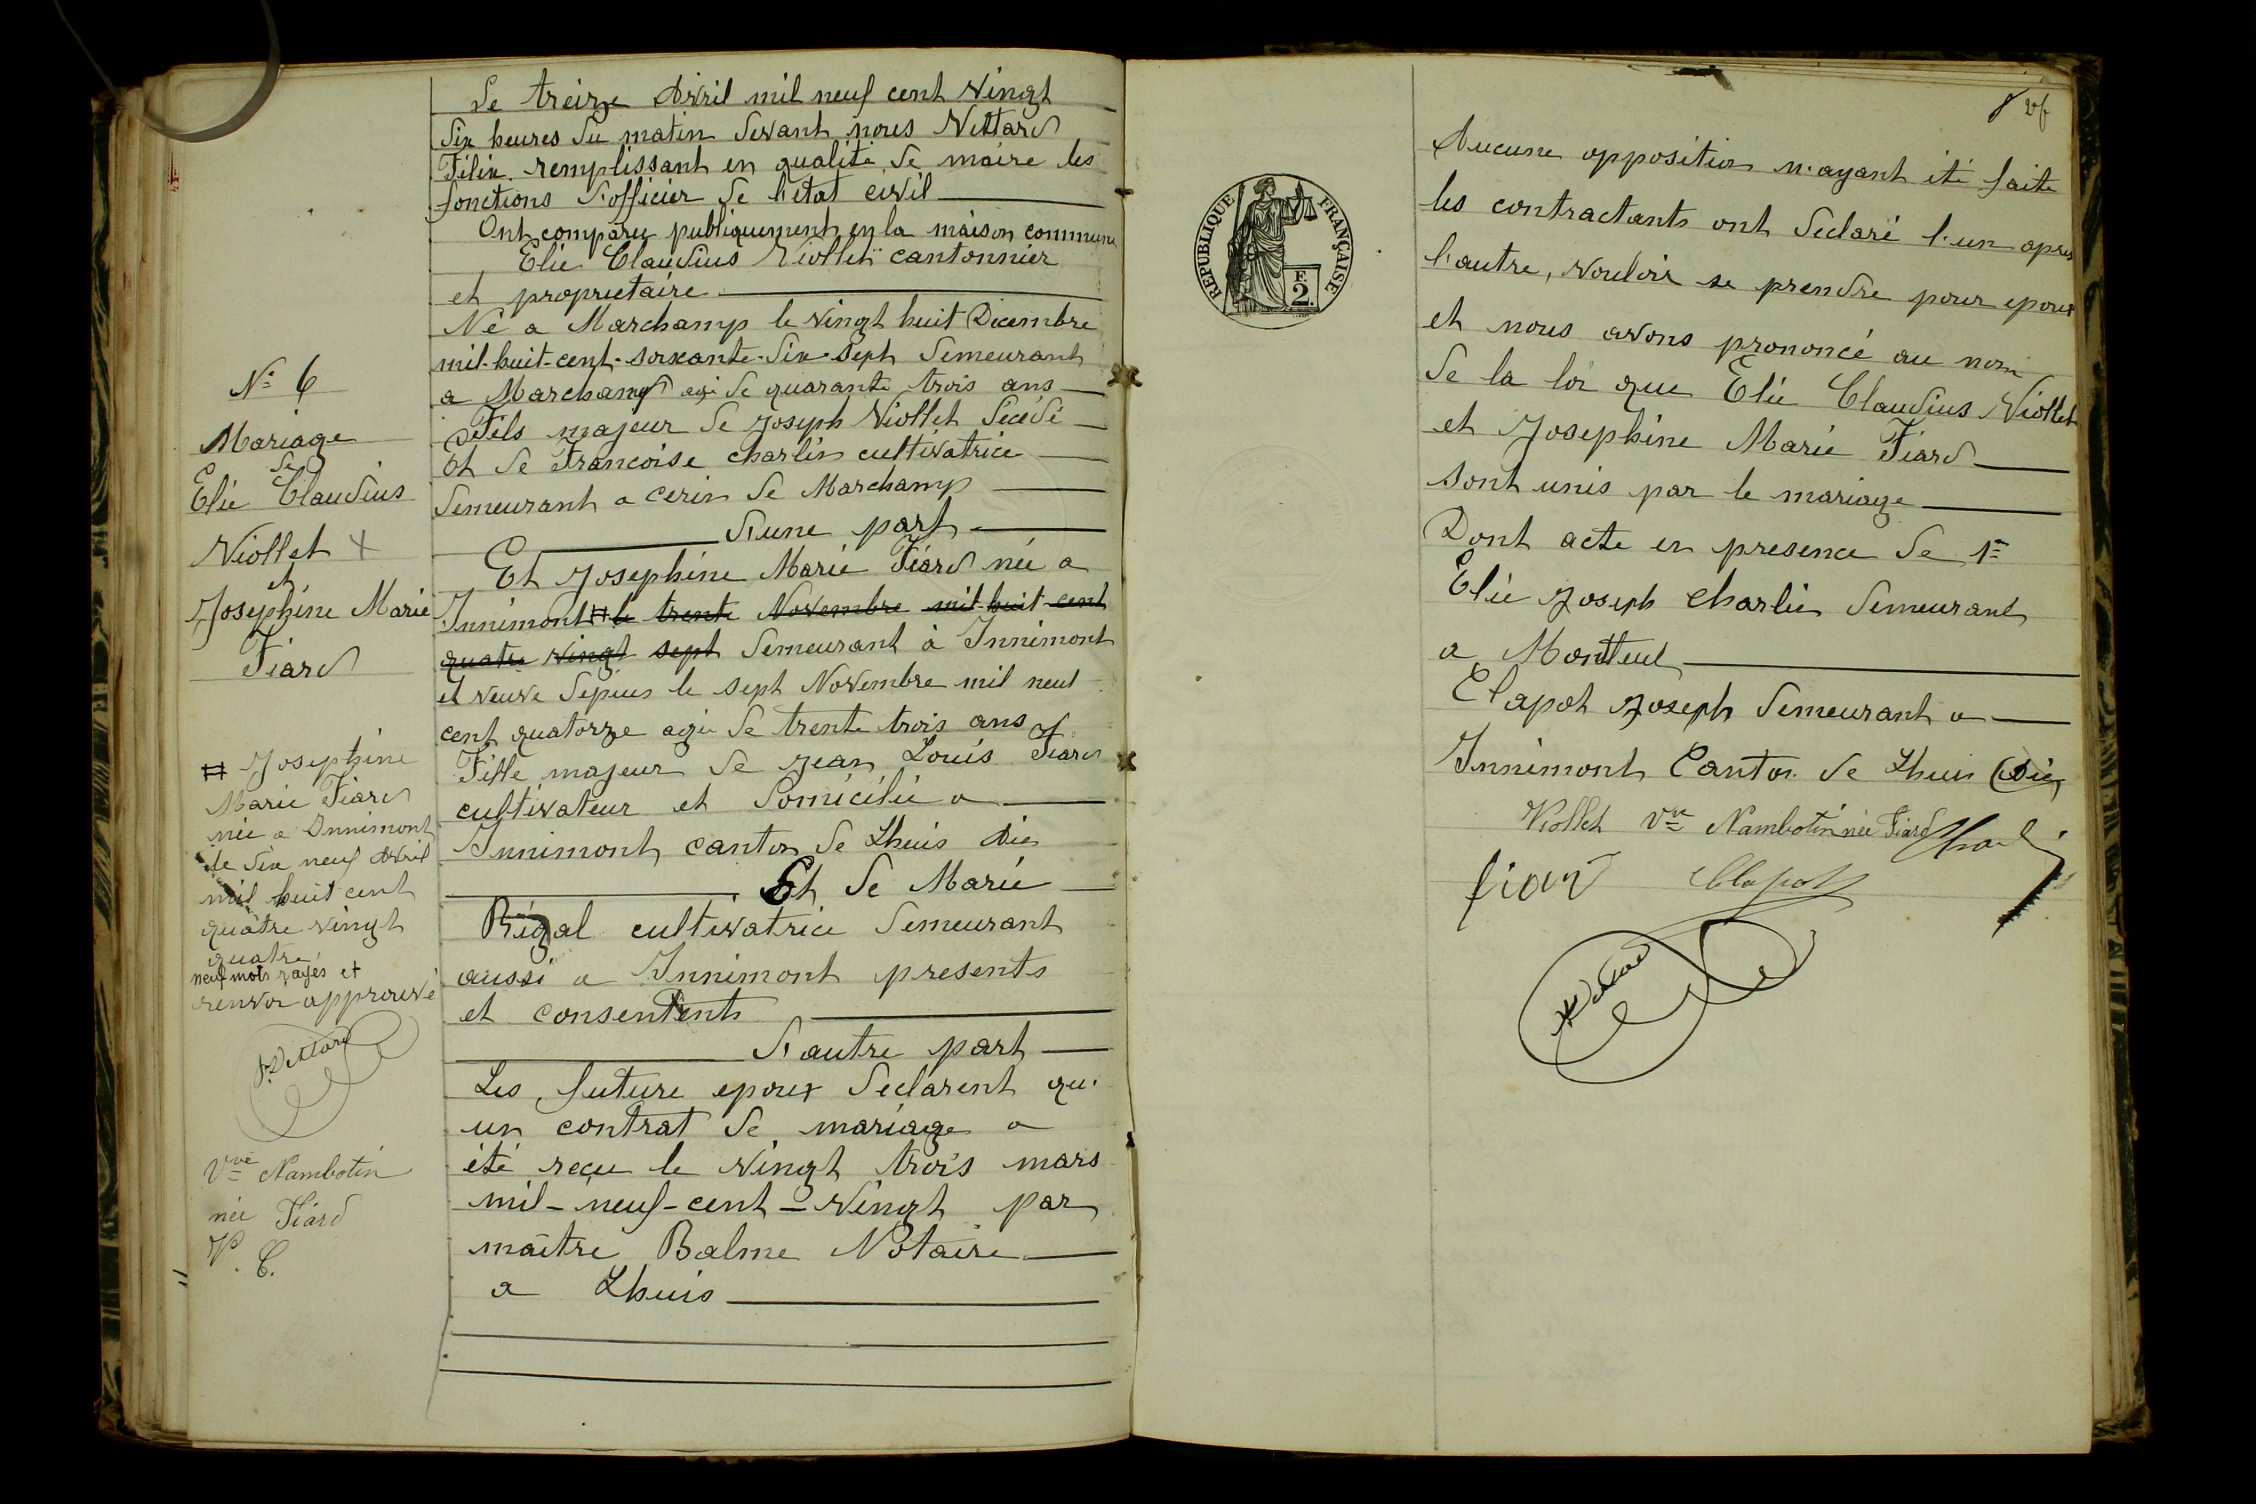 Le treize Avril mil neuf cent vingt
dix heures du matin devant nous Vettard
Félix remplissant en qualité de maire les
fonctions d'officier de l'état civil
Ont comparu publiquement en la maison commune
Elie Claudius Viollet cantonnier
et proprietaire
Né a Marchamp le vingt huit Decembre
mil-huit-cent-soixante-dix-sept demeurant
a Marchamp agé de quarante trois ans
Fils majeur de Joseph Viollet décédé
Et de Francoise charlin cultivatrice
demeurant a cerin de Marchamp
d'une part
Et Josephine Marie Fiard née a
Innimont # le trente Novembre mil huit cent
quatre vingt sept demeurant à Innimont
et veuve depuis le sept Novembre mil neuf
cent quatorze agée de trente trois ans
Fille majeur de Jean Louis Fiard
cultivateur et domicilié a
Innimont canton de Lhuis Ain
Et de Marie
Régal cultivatrice demeurant
aussi a Innimont presents
et consentents
d'autre part
Les future epoux declarent qu'
un contrat de mariage a
été reçu le vingt trois mars
mil-neuf-cent-vingt par
maître Balme Notaire
a Lhuis
N° 6
Mariage
de
Elie Claudius
Viollet
et
Josephine Marie
Fiard
# Josephine
Marie Fiard
née a Innimont
le dix neuf Avril
mil huit cent
quatre vingt
quatre
neuf mots rayés et
renvoi approuvé
F. Vettard
Vve Nambotin
née Fiard
V. C.
REPUBLIQUE FRANÇAISE
F.
2.
Aucune opposition n'ayant été faite
les contractants ont declaré l'un apres
l'autre, vouloir se prendre pour epoux
et nous avons prononcé au nom
de la loi que Elie Claudius Viollet
et Josephine Marie Fiard
sont unis par le mariage
Dont acte en presence de 1°
Elie Joseph Charlin demeurant
a
Clapot Joseph demeurant a
Innimont Canton de Lhuis (Ain)
Viollet Vve Nambotin née Fiard
fiard Clapot
Vettard